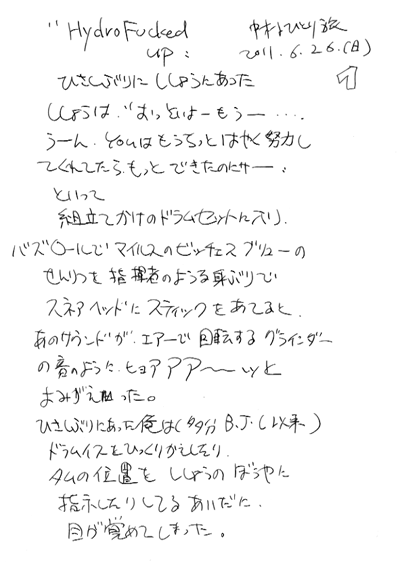 "HydroFucked up:
中村ひとり旅
2011.6.26.(日)
1
ひさしぶりにししょうにあった
ししょうは、"おっといよーもうー‥‥
うーん、youはもうちっとはやく努力し
てくれてたら、もっとできたのにサー：
といって
組立てかけのドラムセットに入り、
バズロールでマイルスのビッチェスブリューの
せんりつを指揮者のような身ぶりで
スネアヘッドにスティックをあてると、
あのサウンドが、エアーで回転するグラインダー
の音のように、ヒョアアア〜〜ッと
よみがえった。
ひさしぶりにあった俺は(多分B.J.以来)
ドラムイスをひっくりかえしたり、
タムの位置をししょうのぼうやに
指示したりしてるあいだに、
目が覚めてしまった。